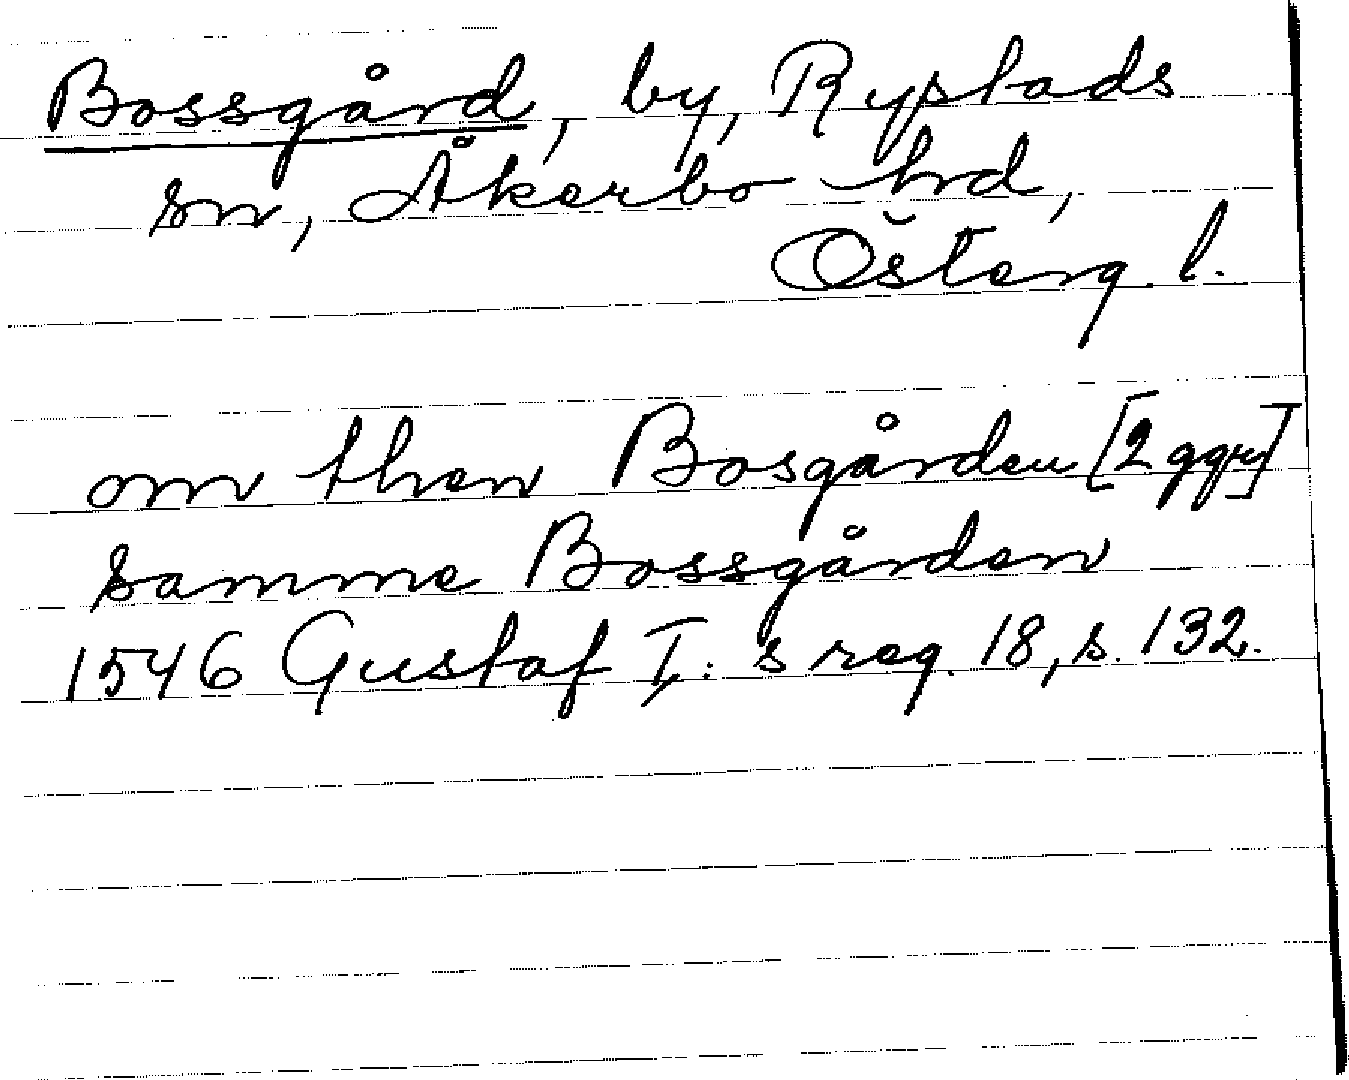 Bossgård, by, Rystads
sn, Åkerbo hrd,
Österg. l.
om then Bosgården [2 ggr]
samme Bossgården
1546 Gustaf I:s reg. 18, s. 132.